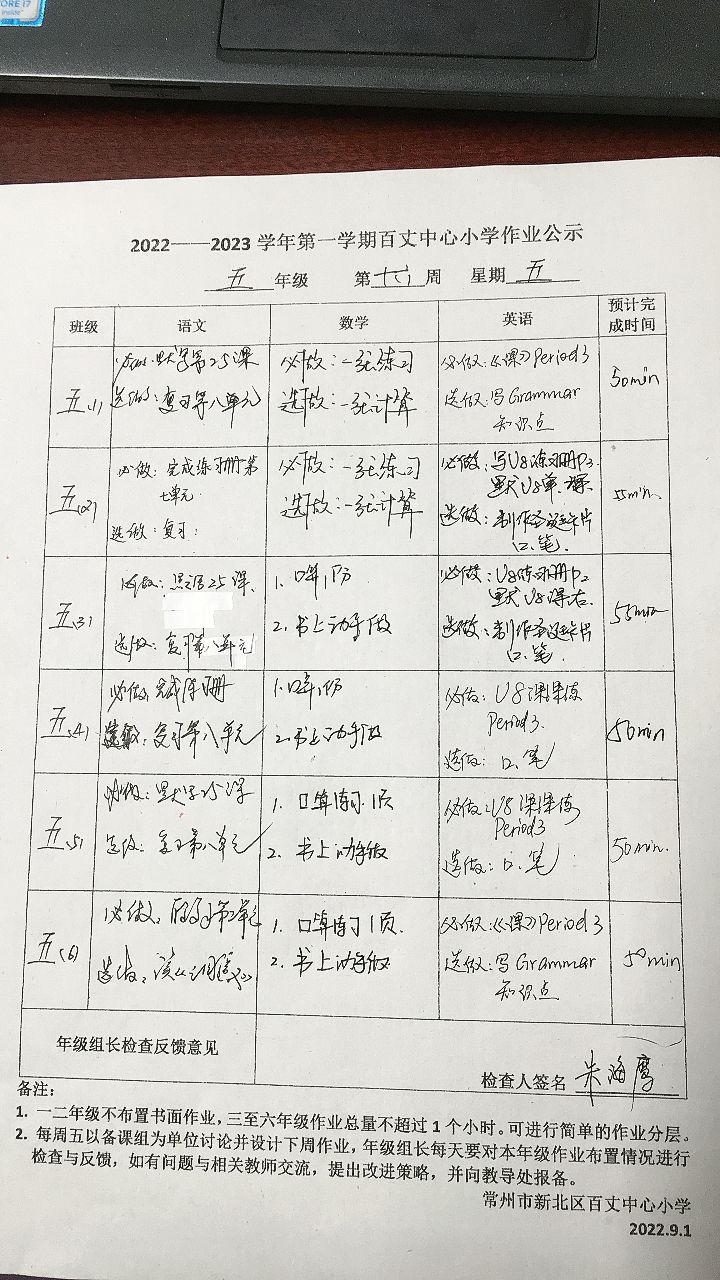 CORE i7
inside
2022——2023 学年第一学期百丈中心小学作业公示
五 年级 第 十六 周 星期 五
班级 语文 数学 英语 预计完成时间
五(1)
必做:默写第25课
选做:复习第八单元
必做:一张练习
选做:一张计算
必做:《课》Period 3
选做:写Grammar
知识点
50min
五(2)
必做:完成练习册第
七单元
选做:复习
必做:一张练习
选做:一张计算
必做:写U8练习册P3
默U8单.课
选做:制作圣诞卡片
口.笔.
55min
五(3)
必做:默写25课
选做:复习第八单元
1. 口算1页
2. 书上动手做
必做:U8练习册P2
默U8课左
选做:制作圣诞卡片
口.笔.
55min
五(4)
必做:完成练习册
选做:复习第八单元
1. 口算1页
2. 书上动手做
必做:U8课课练
Period 3.
选做:口.笔
50min
五(5)
必做:默写25课
选做:复习第八单元
1. 口算练习1页
2. 书上动手做
必做:U8课课练
Period 3
选做:口.笔
50min.
五(6)
必做:
选做:读
1. 口算练习1页.
2. 书上动手做
必做:《课》Period 3
选做:写Grammar
知识点
50min
年级组长检查反馈意见
检查人签名 朱海鹰
备注:
1. 一二年级不布置书面作业,三至六年级作业总量不超过1个小时。可进行简单的作业分层。
2. 每周五以备课组为单位讨论并设计下周作业,年级组长每天要对本年级作业布置情况进行
检查与反馈,如有问题与相关教师交流,提出改进策略,并向教导处报备。
常州市新北区百丈中心小学
2022.9.1